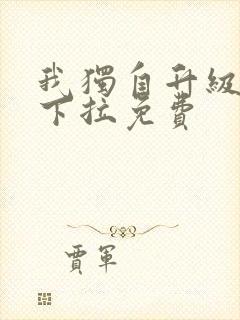 我獨自升級
下拉免費
賈軍